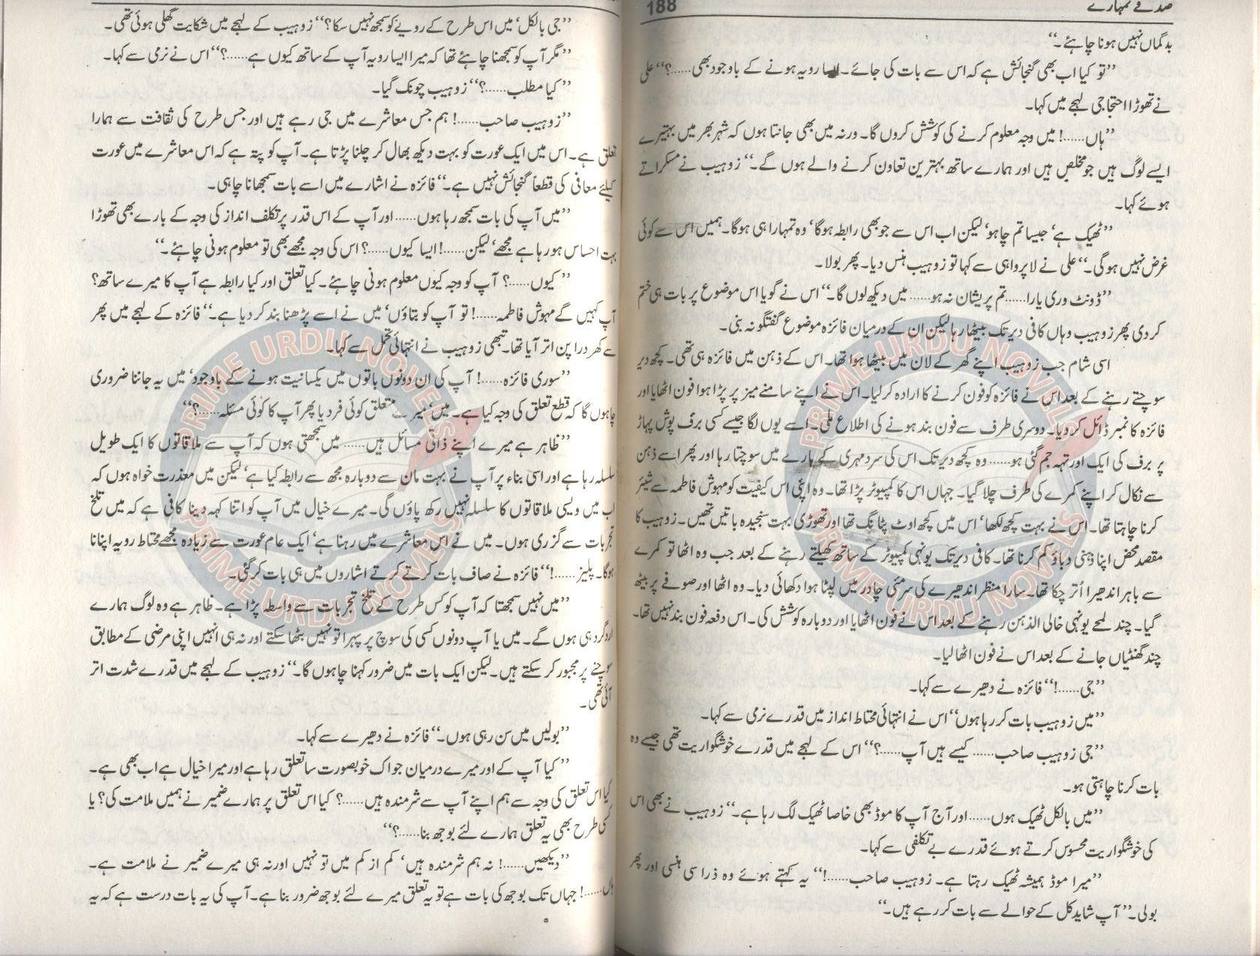 صدقے تمہارے
188
بدگماں نہیں ہونا چاہئے۔‘‘
’’تو کیا اب بھی گنجائش ہے کہ اس سے بات کی جائے۔ ایسا رویہ ہونے کے باوجود بھی......؟‘‘ علی
نے تھوڑا احتجاجی لہجے میں کہا۔
’’ہاں......! میں وجہ معلوم کرنے کی کوشش کروں گا۔ ورنہ میں بھی جانتا ہوں کہ شہر بھر میں بہتیرے
ایسے لوگ ہیں جو مخلص ہیں اور ہمارے ساتھ بہترین تعاون کرنے والے ہوں گے۔‘‘ زوہیب نے مسکراتے
ہوئے کہا۔
’’ٹھیک ہے‘ جیسا تم چاہو‘ لیکن اب اس سے جو بھی رابطہ ہوگا‘ وہ تمہارا ہی ہوگا۔ ہمیں اس سے کوئی
غرض نہیں ہوگی۔‘‘ علی نے لاپرواہی سے کہا تو زوہیب ہنس دیا۔ پھر بولا۔
’’ڈونٹ وری یارا......تم پریشان نہ ہو...... میں دیکھ لوں گا۔‘‘ اس نے گویا اس موضوع پر بات ہی ختم
کر دی پھر زوہیب وہاں کافی دیر تک بیٹھا رہا لیکن ان کے درمیان فائزہ موضوع گفتگو نہ بنی۔
اسی شام جب زوہیب اپنے گھر کے لان میں بیٹھا ہوا تھا۔ اس کے ذہن میں فائزہ ہی تھی۔ کچھ دیر
سوچتے رہنے کے بعد اس نے فائزہ کو فون کرنے کا ارادہ کر لیا۔ اس نے اپنے سامنے میز پر پڑا ہوا فون اٹھایا اور
فائزہ کا نمبر ڈائل کر دیا۔ دوسری طرف سے فون بند ہونے کی اطلاع ملی۔ اسے یوں لگا جیسے کسی برف پوش پہاڑ
پر برف کی ایک اور تہہ جم گئی ہو......وہ کچھ دیر تک اس کی سرد مہری کے بارے میں سوچتا رہا اور پھر اسے ذہن
سے نکال کر اپنے کمرے کی طرف چلا گیا۔ جہاں اس کا کمپیوٹر پڑا تھا۔ وہ اپنی اس کیفیت کو مہوش فاطمہ سے شیئر
کرنا چاہتا تھا۔ اس نے بہت کچھ لکھا‘ اس میں کچھ اوٹ پٹانگ تھا اور تھوڑی بہت سنجیدہ باتیں تھیں۔ زوہیب کا
مقصد محض اپنا ذہنی دباؤ کم کرنا تھا۔ کافی دیر تک یونہی کمپیوٹر کے ساتھ کھیلتے رہنے کے بعد جب وہ اٹھا تو کمرے
سے باہر اندھیرا اُتر چکا تھا۔ سارا منظر اندھیرے کی سرمئی چادر میں لپٹا ہوا دکھائی دیا۔ وہ اٹھا اور صوفے پر بیٹھ
گیا۔ چند لمحے یونہی خالی الذہن رہنے کے بعد اس نے فون اٹھایا اور دوبارہ کوشش کی۔ اس دفعہ فون بند نہیں تھا۔
چند گھنٹیاں جانے کے بعد اس نے فون اٹھا لیا۔
’’جی......!‘‘ فائزہ نے دھیرے سے کہا۔
’’میں زوہیب بات کر رہا ہوں‘‘ اس نے انتہائی محتاط انداز میں قدرے نرمی سے کہا۔
’’جی زوہیب صاحب...... کیسے ہیں آپ......؟‘‘ اس کے لہجے میں قدرے خوشگواریت تھی جیسے وہ
بات کرنا چاہتی ہو۔
’’میں بالکل ٹھیک ہوں......اور آج آپ کا موڈ بھی خاصا ٹھیک لگ رہا ہے۔‘‘ زوہیب نے بھی اس
کی خوشگواریت محسوس کرتے ہوئے قدرے بے تکلفی سے کہا۔
’’میرا موڈ ہمیشہ ٹھیک رہتا ہے۔ زوہیب صاحب......!‘‘ یہ کہتے ہوئے وہ ذرا سی ہنسی اور پھر
بولی۔ ’’آپ شاید کل کے حوالے سے بات کر رہے ہیں۔‘‘
’’جی بالکل‘ میں اس طرح کے رویے کو سمجھ نہیں سکا؟‘‘ زوہیب کے لہجے میں شکایت گھلی ہوئی تھی۔
’’مگر آپ کو سمجھنا چاہئے تھا کہ میرا ایسا رویہ آپ کے ساتھ کیوں ہے......؟‘‘ اس نے نرمی سے کہا۔
’’کیا مطلب......؟‘‘ زوہیب چونک گیا۔
’’زوہیب صاحب......! ہم جس معاشرے میں جی رہے ہیں اور جس طرح کی ثقافت سے ہمارا
تعلق ہے۔ اس میں ایک عورت کو بہت دیکھ بھال کر چلنا پڑتا ہے۔ آپ کو پتہ ہے کہ اس معاشرے میں عورت
کیلئے معافی کی قطعاً گنجائش نہیں ہے۔‘‘ فائزہ نے اشارے میں اسے بات سمجھانا چاہی۔
’’میں آپ کی بات سمجھ رہا ہوں......اور آپ کے اس قدر پرتکلف انداز کی وجہ کے بارے بھی تھوڑا
بہت احساس ہو رہا ہے مجھے‘ لیکن......! ایسا کیوں......؟ اس کی وجہ مجھے بھی تو معلوم ہونی چاہئے۔‘‘
’’کیوں......؟ آپ کو وجہ کیوں معلوم ہونی چاہئے۔ کیا تعلق اور کیا رابطہ ہے آپ کا میرے ساتھ؟
آپ کہیں گے مہوش فاطمہ......! تو آپ کو بتاؤں‘ میں نے اسے پڑھنا بند کر دیا ہے۔‘‘ فائزہ کے لہجے میں پھر
سے کھردرا پن اتر آیا تھا۔ تبھی زوہیب نے انتہائی تحمل سے کہا۔
’’سوری فائزہ......! آپ کی ان دونوں باتوں میں یکسانیت ہونے کے باوجود‘ میں یہ جاننا ضروری
چاہوں گا کہ قطع تعلق کی وجہ کیا ہے۔ میں‘ میرے متعلق کوئی فرد یا پھر آپ کا کوئی مسئلہ......؟‘‘
’’ظاہر ہے میرے اپنے ذاتی مسائل ہیں......میں سمجھتی ہوں کہ آپ سے ملاقاتوں کا ایک طویل
سلسلہ رہا ہے اور اسی بناء پر آپ نے بہت مان سے دوبارہ مجھ سے رابطہ کیا ہے‘ لیکن میں معذرت خواہ ہوں کہ
اب میں ویسی ملاقاتوں کا سلسلہ نہیں رکھ پاؤں گی۔ میرے خیال میں آپ کو اتنا کہہ دینا کافی ہے کہ میں تلخ
تجربات سے گزری ہوں۔ میں نے اس معاشرے میں رہنا ہے‘ ایک عام عورت سے زیادہ مجھے محتاط رویہ اپنانا
ہوگا۔ پلیز......!‘‘ فائزہ نے صاف بات کرتے کرتے اشاروں میں ہی بات کر گئی۔
’’میں نہیں سمجھتا کہ آپ کو کس طرح کے تلخ تجربات سے واسطہ پڑا ہے۔ ظاہر ہے وہ لوگ ہمارے
اردگرد ہی ہوں گے۔ میں یا آپ دونوں کسی کی سوچ پر پہرا تو نہیں بٹھا سکتے اور نہ ہی انہیں اپنی مرضی کے مطابق
سوچنے پر مجبور کر سکتے ہیں۔ لیکن ایک بات میں ضرور کہنا چاہوں گا۔‘‘ زوہیب کے لہجے میں قدرے شدت اتر
آئی تھی۔
’’بولیں میں سن رہی ہوں۔‘‘ فائزہ نے دھیرے سے کہا۔
’’کیا آپ کے اور میرے درمیان جو اک خوبصورت سا تعلق رہا ہے اور میرا خیال ہے اب بھی ہے۔
کیا اس تعلق کی وجہ سے ہم اپنے آپ سے شرمندہ ہیں......؟ کیا اس تعلق پر ہمارے ضمیر نے ہمیں ملامت کی؟ یا
کسی طرح بھی یہ تعلق ہمارے لئے بوجھ بنا......؟‘‘
’’دیکھیں......! نہ ہم شرمندہ ہیں‘ کم از کم میں تو نہیں اور نہ ہی میرے ضمیر نے ملامت ہے۔
ہاں......! جہاں تک بوجھ کی بات ہے تو یہ تعلق میرے لئے بوجھ ضرور بنا ہے۔ آپ کی یہ بات درست ہے کہ یہ
PRIME URDU NOVELS
PRIME URDU NOVELS
PRIME URDU NOVELS
PRIME URDU NOVELS